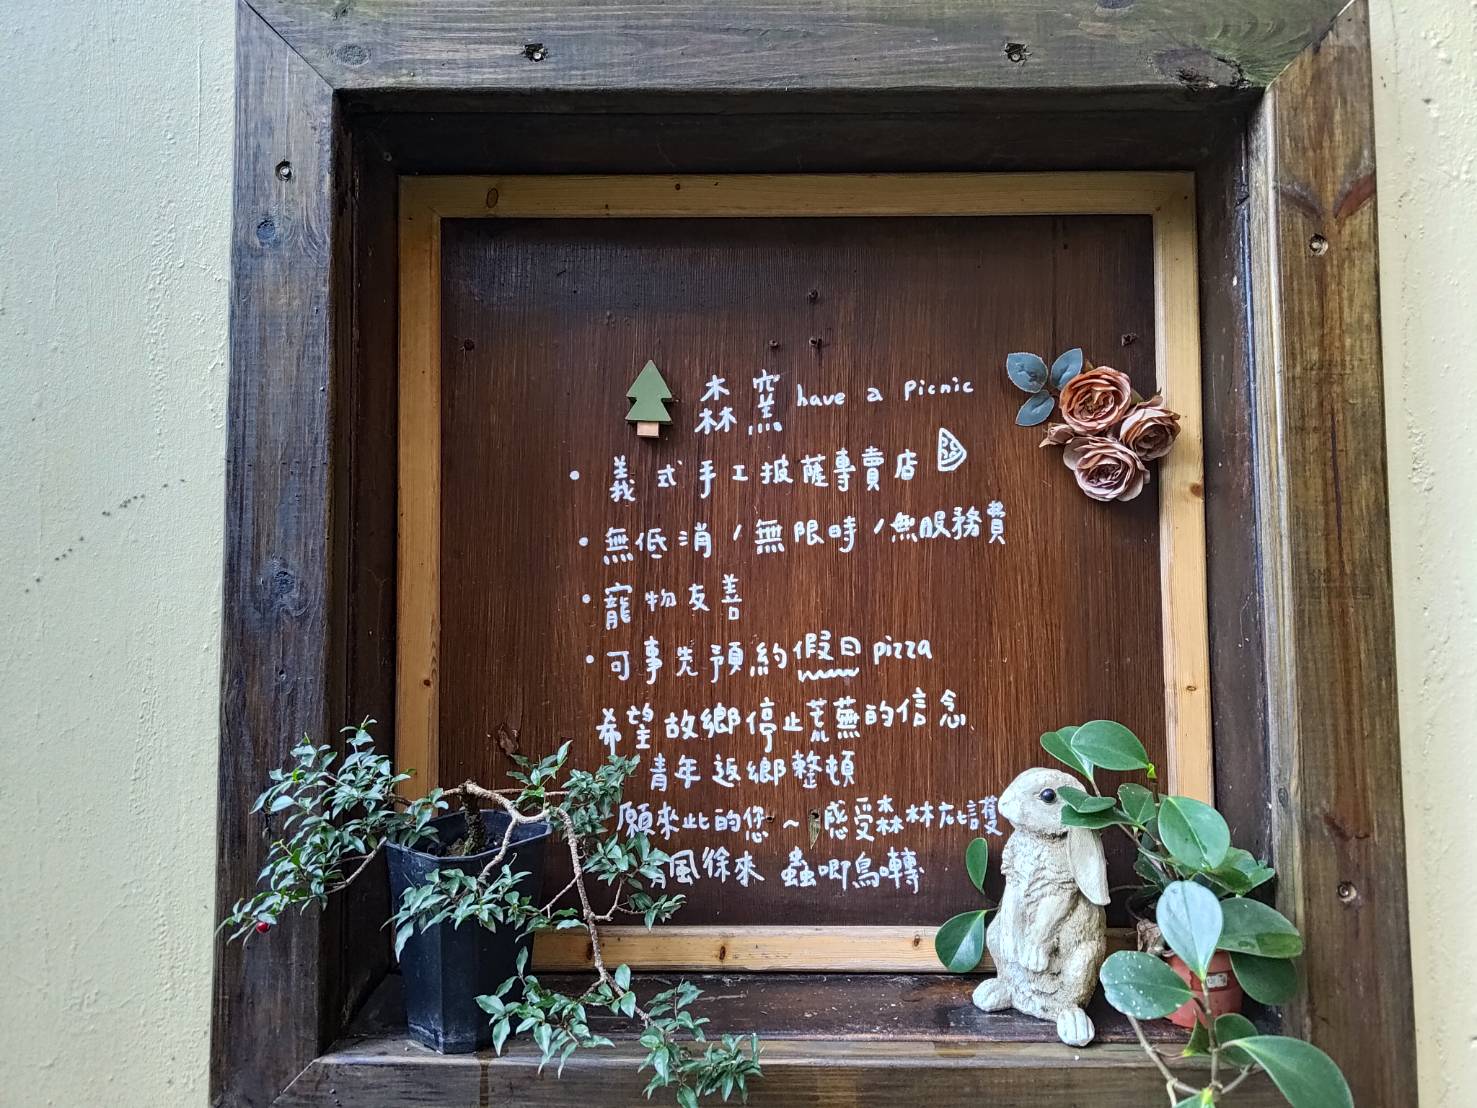 森窯 have a picnic
• 義式手工披薩專賣店
• 無低消/無限時/無服務費
• 寵物友善
• 可事先預約假日pizza
希望故鄉停止荒蕪的信念
青年返鄉整頓
願來此的您~感受森林庇護
風徐來 蟲唧鳥囀